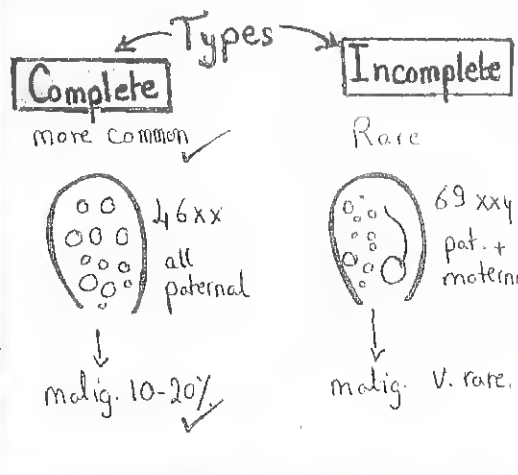 Types
Complete
more common
46xx
all
paternal
malig. 10-20%
Incomplete
Rare
69 xxy
pat. +
matern
malig. v. rare.